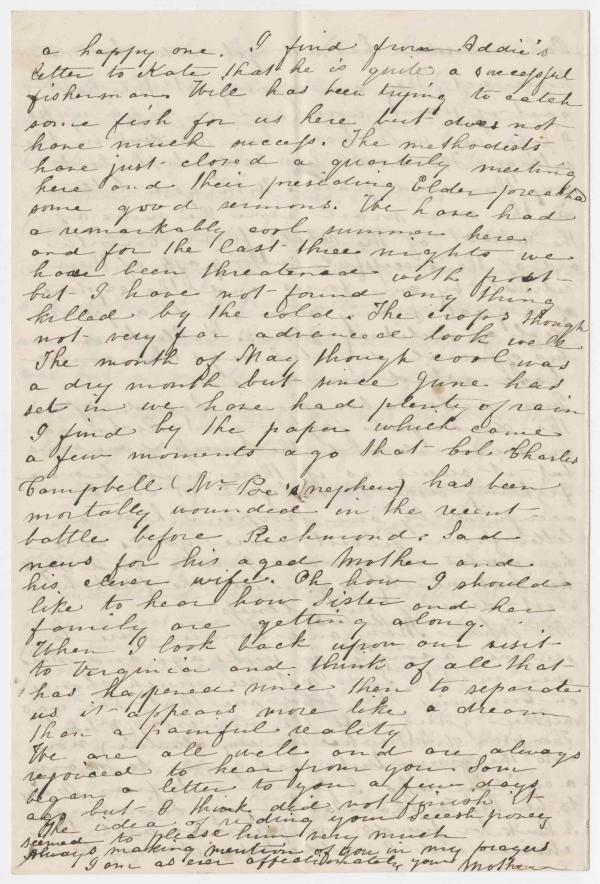 a happy one. I find from Addie's
letter to Kate that he is quite a successful
fisherman. Will has been trying to catch
some fish for us here but does not
have much success. The methodists
have just closed a quarterly meeting
here and their presiding Elder preached
some good sermons. We have had
a remarkably cool summer here
and for the last three nights we
have been threatened with frost
but I have not found any thing
killed by the cold. The crops though
not very far advanced look well
The month of May though cool was
a dry month but since June has
set in we have had plenty of rain
I find by the paper which came
a few moments ago that Col Charles
Campbell (Mr. Poe's nephew) has been
mortally wounded in the recent
battle before Richmond. Sad
news for his aged Mother and
his clever wife. Oh how I should
like to hear how Sister and her
family are getting along.
When I look back upon our visit
to Virginia and think of all that
has happened since then to separate
us it appears more like a dream
than a painful reality
We are all well and are always
rejoiced to hear from you Som
began a letter to you a few days
ago but I think did not finish it
The idea of riding your secesh poney
seemed to please him very much
Always making mention of you in my prayers
I am as ever affectionately your Mother